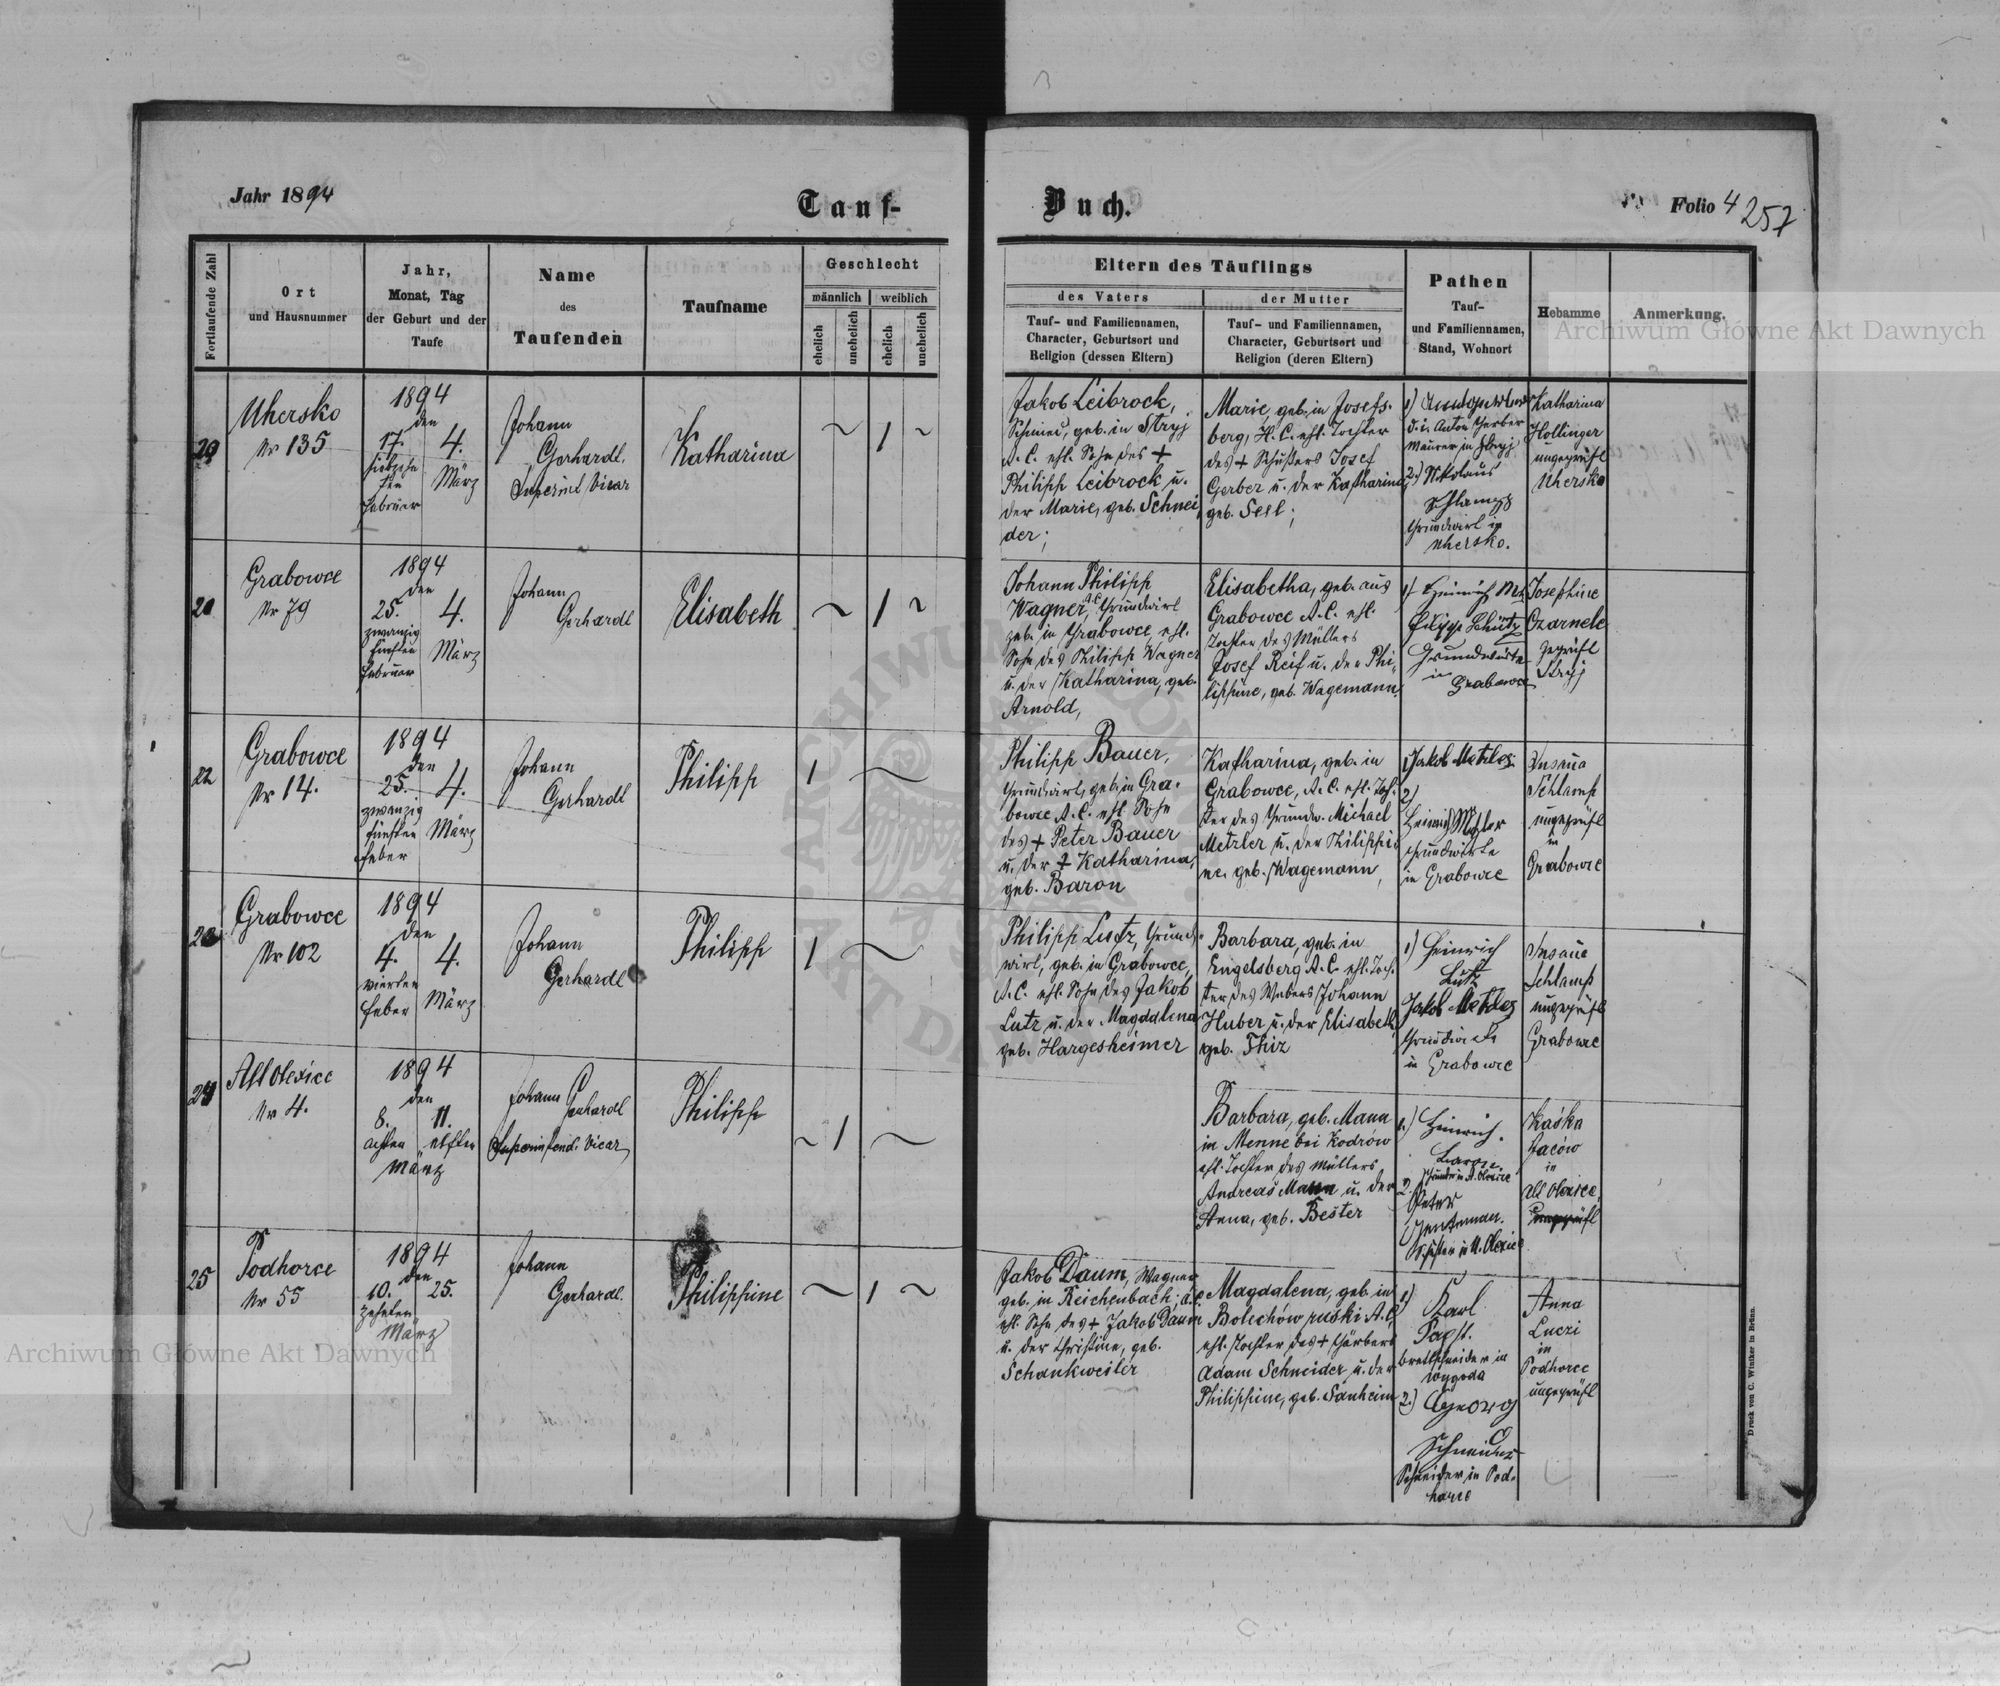 Jahr 1894
Tauf-
Buch.
Folio 4
257
Fortlaufende Zahl
Ort
und Hausnummer
Jahr,
Monat, Tag
der Geburt und der
Taufe
Name
des
Taufenden
Taufname
Geschlecht
männlich
weiblich
ehelich
unehelich
ehelich
unehelich
Eltern des Täuflings
des Vaters
Tauf- und Familiennamen,
Character, Geburtsort und
Religion (dessen Eltern)
der Mutter
Tauf- und Familiennamen,
Character, Geburtsort und
Religion (deren Eltern)
Pathen
Tauf-
und Familiennamen,
Stand, Wohnort
Hebamme
Anmerkung.
Uhersko
Nr 135
1894
den
17. 4.
siebzehn
ten
Februar
März
Johann
Gerhardt,
Superint. Vicar
Katharina
~ 1 ~
Jakob Leibrock,
Schmied, geb. in Stryj
A.C. ehl. Sohn des +
Philipp Leibrock u.
der Marie, geb. Schnei
der;
Marie, geb. in Josefs-
berg, H.C. ehl. Tochter
des + Schusters Josef
Gerber u. der Katharina
geb. Sell;
1)
d.i. Anton Gerber
Maurer in Stryj
2.) Nikolaus
Schlamp
Grundwirt in
Uhersko.
Katharina
Hollinger
ungeprüft
Uhersko
21
Grabowce
Nr 79
1894
den
25. 4.
zwanzig
fünften
Februar
März
Johann
Gerhardt
Elisabeth
~ 1 ~
Johann Philipp
Wagner, A.C. Grundwirt
geb. in Grabowce, ehl.
Sohn des Philipp Wagner
u. der Katharina, geb.
Arnold,
Elisabetha, geb. aus
Grabowce A.C. ehl.
Tochter des Müllers
Josef Reif u. der Phi-
lippine, geb. Wagemann,
1) Heinrich
Filipp Schütz
Grundwirte
in
Grabowce
Josephine
Czarnek
geprüft
Stryj
22
Grabowce
Nr 14.
1894
den
25. 4.
zwanzig
fünften
Feber
März
Johann
Gerhardt
Philipp
1 ~
Philipp Bauer,
Grundwirt, geb. in Gra-
bowce A.C. ehl. Sohn
des + Peter Bauer
u. der + Katharina,
geb. Baron
Katharina, geb. in
Grabowce, A.C. ehl. Toch-
ter des Grundw. Michael
Metzler u. der Philippi-
ne, geb. Wagemann,
1) Jakob Metzler
2)
Heinrich Metzler
Grundwirte
in Grabowce
Susana
Schlamp
ungeprüft
in
Grabowce
23
Grabowce
Nr 102
1894
den
4. 4.
vierten
Feber
März
Johann
Gerhardt
Philipp
1 ~
Philipp Lutz, Grund-
wirt, geb. in Grabowce,
A.C. ehl. Sohn des Jakob
Lutz u. der Magdalena
geb. Hargesheimer
Barbara, geb. in
Engelsberg A.C. ehl. Toch-
ter des Webers Johann
Huber u. der Elisabeth
geb. Thiz
1) Heinrich
Lutz
Jakob Metzler
Grundwirte
in Grabowce
Susana
Schlamp
ungeprüft
Grabowce
24
Alt Olexice
Nr 4.
1894
den
8. 11.
achten elften
März
Johann Gerhardt
Superintend. Vicar
Philipp
~ 1 ~
Barbara, geb. Mann
in Menne bei Kodrów
ehl. Tochter des Müllers
Andreas Mann u. der
Anna, geb. Bester
1.) Heinrich
2.
Peter
Kaśka
Jaców
in
Alt Olexice,
ungeprüft
25
Podhorce
Nr 55
1894
den
10. 25.
zehnten
März
Johann
Gerhardt.
Philippine
~ 1 ~
Jakob Daum, Wagner
geb. in Reichenbach, A.C.
ehl. Sohn des + Jakob Daum
u. der Christine, geb.
Schankweiler
Magdalena, geb. in
Bolechów ruski A.C.
ehl. Tochter des + Färbers
Adam Schneider u. der
Philippine, geb. Sanheim
1)
Karl
Papst.
Brettschneider in
Wygoda
2.) Georg
Schneider
Schneider in Pod-
horce
Anna
Luczi
in
Podhorce
ungeprüft
Druck von C. Winiker in Brünn.
Archiwum Główne Akt Dawnych
Archiwum Główne Akt Dawnych